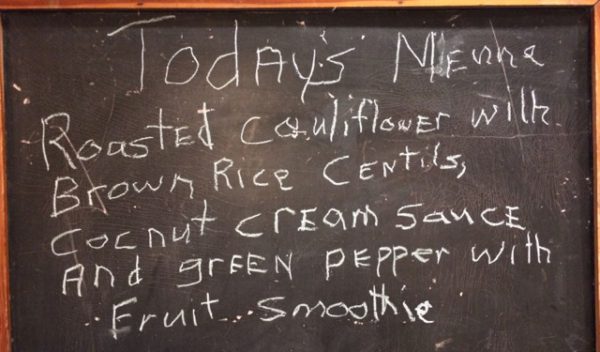 Today's Menna
Roasted Cauliflower with
Brown Rice Centils,
Cocnut cream sauce
And green pepper with
Fruit smoothie